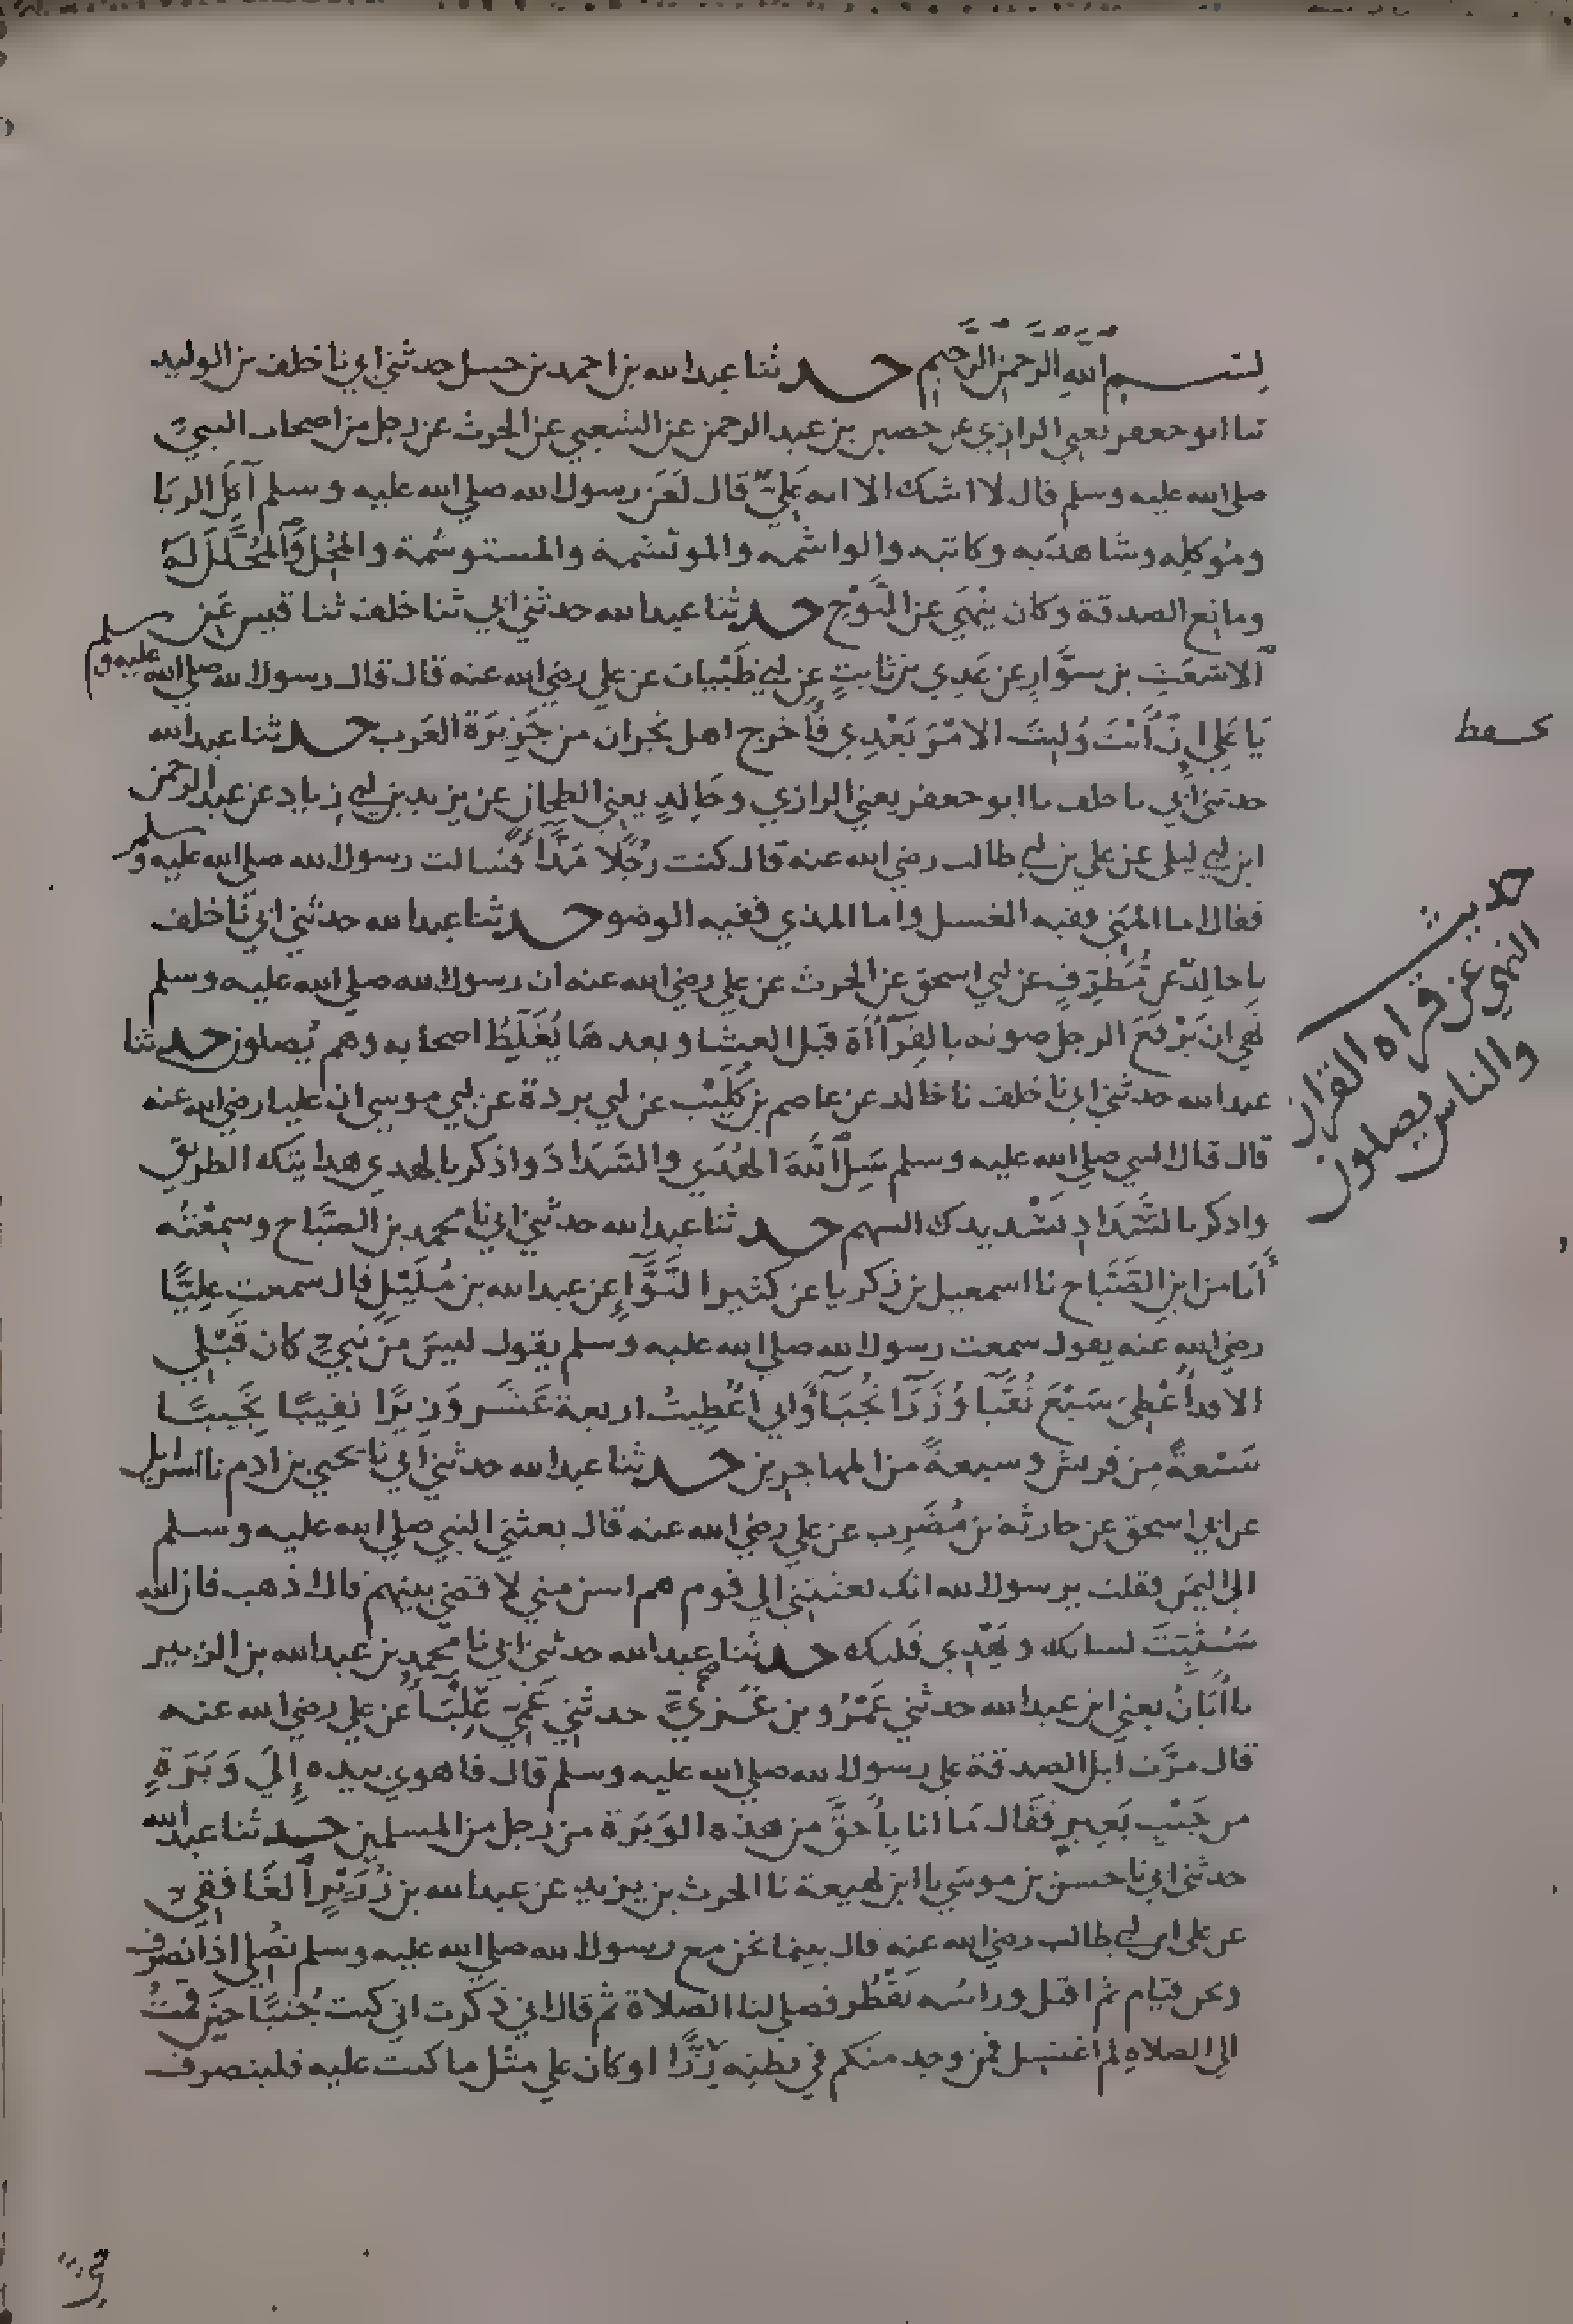 بسم الله الرحمن الرحيم حدثنا عبد الله بن احمد بن حنبل حدثني ابي نا خلف بن الوليد
ثنا ابو جعفر يعني الرازي عن حصين بن عبد الرحمن عن الشعبي عن الحرث عن رجل من اصحاب النبي
صلى الله عليه وسلم قال لا اشك الا انه علي قال لعن رسول الله صلى الله عليه وسلم آكل الربا
وموكله وشاهديه وكاتبه والواشمه والموتشمة والمستوشمة والمحل والمحلل له
ومانع الصدقة وكان ينهى عن النوح حدثنا عبد الله حدثني ابي ثنا خلف ثنا قيس عن
الاشعث بن سوار عن عدي بن ثابت عن ابي ظبيان عن علي رضي الله عنه قال قال رسول الله صلى الله عليه وسلم
يا علي ان أنت وليت الامر بعدي فأخرج اهل نجران من جزيرة العرب حدثنا عبد الله
حدثني ابي نا خلف نا ابو جعفر يعني الرازي وخالد يعني الطحان عن يزيد بن ابي زياد عن عبد الرحمن
ابن ابي ليلى عن علي بن ابي طالب رضي الله عنه قال كنت رجلا مذاء فسالت رسول الله صلى الله عليه وسلم
فقال اما المني ففيه الغسل واما المذي ففيه الوضو حدثنا عبد الله حدثني ابي نا خلف
نا خالد عن مطرف عن ابي اسحق عن الحرث عن علي رضي الله عنه ان رسول الله صلى الله عليه وسلم
نهى ان يرفع الرجل صوته بالقرآأة قبل العشا وبعدها يغلط اصحابه وهم يصلون حدثنا
عبد الله حدثني ابي نا خلف نا خالد عن عاصم بن كليب عن ابي بردة عن ابي موسى ان عليا رضي الله عنه
قال قال النبي صلى الله عليه وسلم سل الله الهدى والسداد واذكر بالهدى هدايتك الطريق
واذكر بالسداد تسديدك السهم حدثنا عبد الله حدثني ابي نا محمد بن الصباح وسمعته
أنا من ابن الصباح نا اسمعيل بن زكريا عن كثير النوا عن عبد الله بن مليل قال سمعت عليا
رضي الله عنه يقول سمعت رسول الله صلى الله عليه وسلم يقول ليس من نبي كان قبلي
الا قد أعطي سبع نقبا وزرا نجبا واني اعطيت اربعة عشر وزيرا نقيبا نجيبا
سبعة من قريش وسبعة من المهاجرين حدثنا عبد الله حدثني ابي نا يحيى بن ادم نا اسرايل
عن ابي اسحق عن حارثة بن مضرب عن علي رضي الله عنه قال بعثني النبي صلى الله عليه وسلم
الى اليمن فقلت يرسول الله انك بعثتني الى قوم هم اسن مني لاقضي بينهم قال اذهب فان الله
سيثبت لسانك ويهدي قلبك حدثنا عبد الله حدثني ابي نا محمد بن عبد الله بن الزبير
نا أبان يعني ابن عبد الله حدثني عمرو بن غزي حدثني عمي علبا عن علي رضي الله عنه
قال مرت ابل الصدقة على رسول الله صلى الله عليه وسلم قال فاهوى بيده إلى وبرة
من جنب بعير فقال ما انا بأحق من هذه الوبرة من رجل من المسلمين حدثنا عبد الله
حدثني ابي نا حسن بن موسى نا ابن لهيعة نا الحرث بن يزيد عن عبد الله بن زرير الغافقي
عن علي ابن ابي طالب رضي الله عنه قال بينما نحن مع رسول الله صلى الله عليه وسلم نصلي اذ انصرف
ونحن قيام ثم اقبل وراسه يقطر فصلى لنا الصلاة ثم قال اني ذكرت اني كنت جنبا حين قمت
الى الصلاة لم اغتسل فمن وجد منكم في بطنه رزا او كان على مثل ما كنت عليه فلينصرف
حديث
النهي عن قراه القران
والناس يصلون